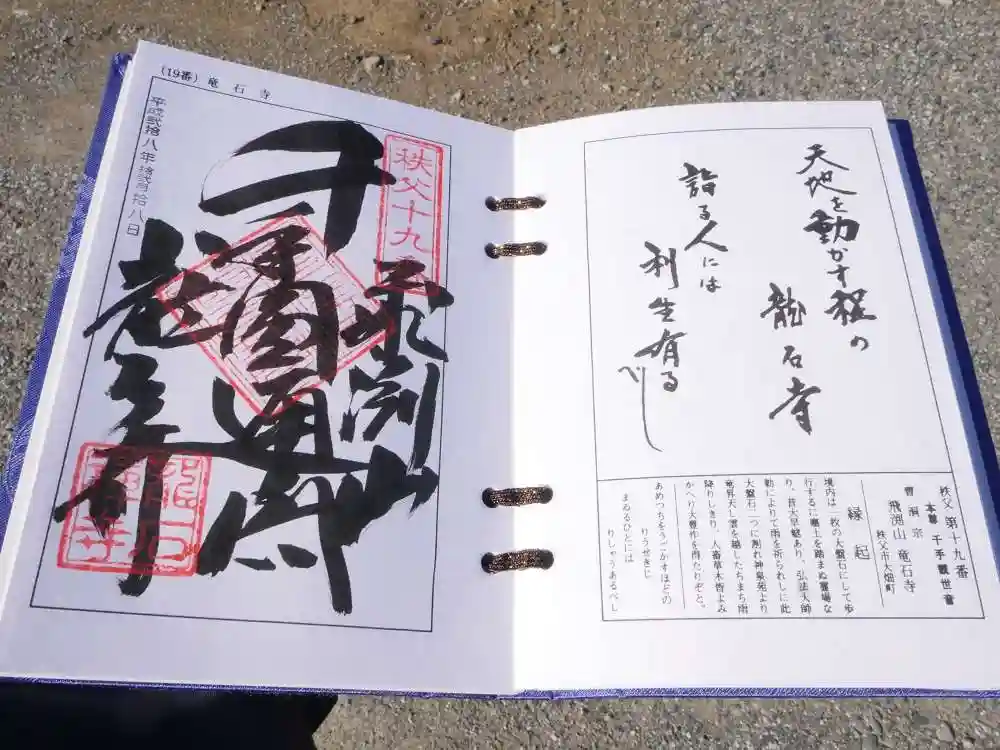 (19番) 竜石寺
平成弐拾八年拾弐月拾八日
秩父十九番
飛淵山
千手
圓通閣
龍石寺
龍石
禅寺
天地を動かす程の
龍石寺
詣る人には
利生有るべし
秩父 第十九番
本尊 千手観世音
曹洞宗
飛淵山 竜石寺
秩父市大畑町
縁起
境内は一枚の大盤石にして歩
行するに塵土を踏まぬ霊場な
り、昔大旱魃あり、弘法大師
勅によりて雨を祈られしに此
大盤石二つに割れ神泉苑より
竜昇天し雲を越したちまち雨
降りしきり、人畜草木皆よみ
かへり大豊作を得たりぞと。
あめつちをうごかすほどの
りうせきじ
まゐるひとには
りしゃうあるべし